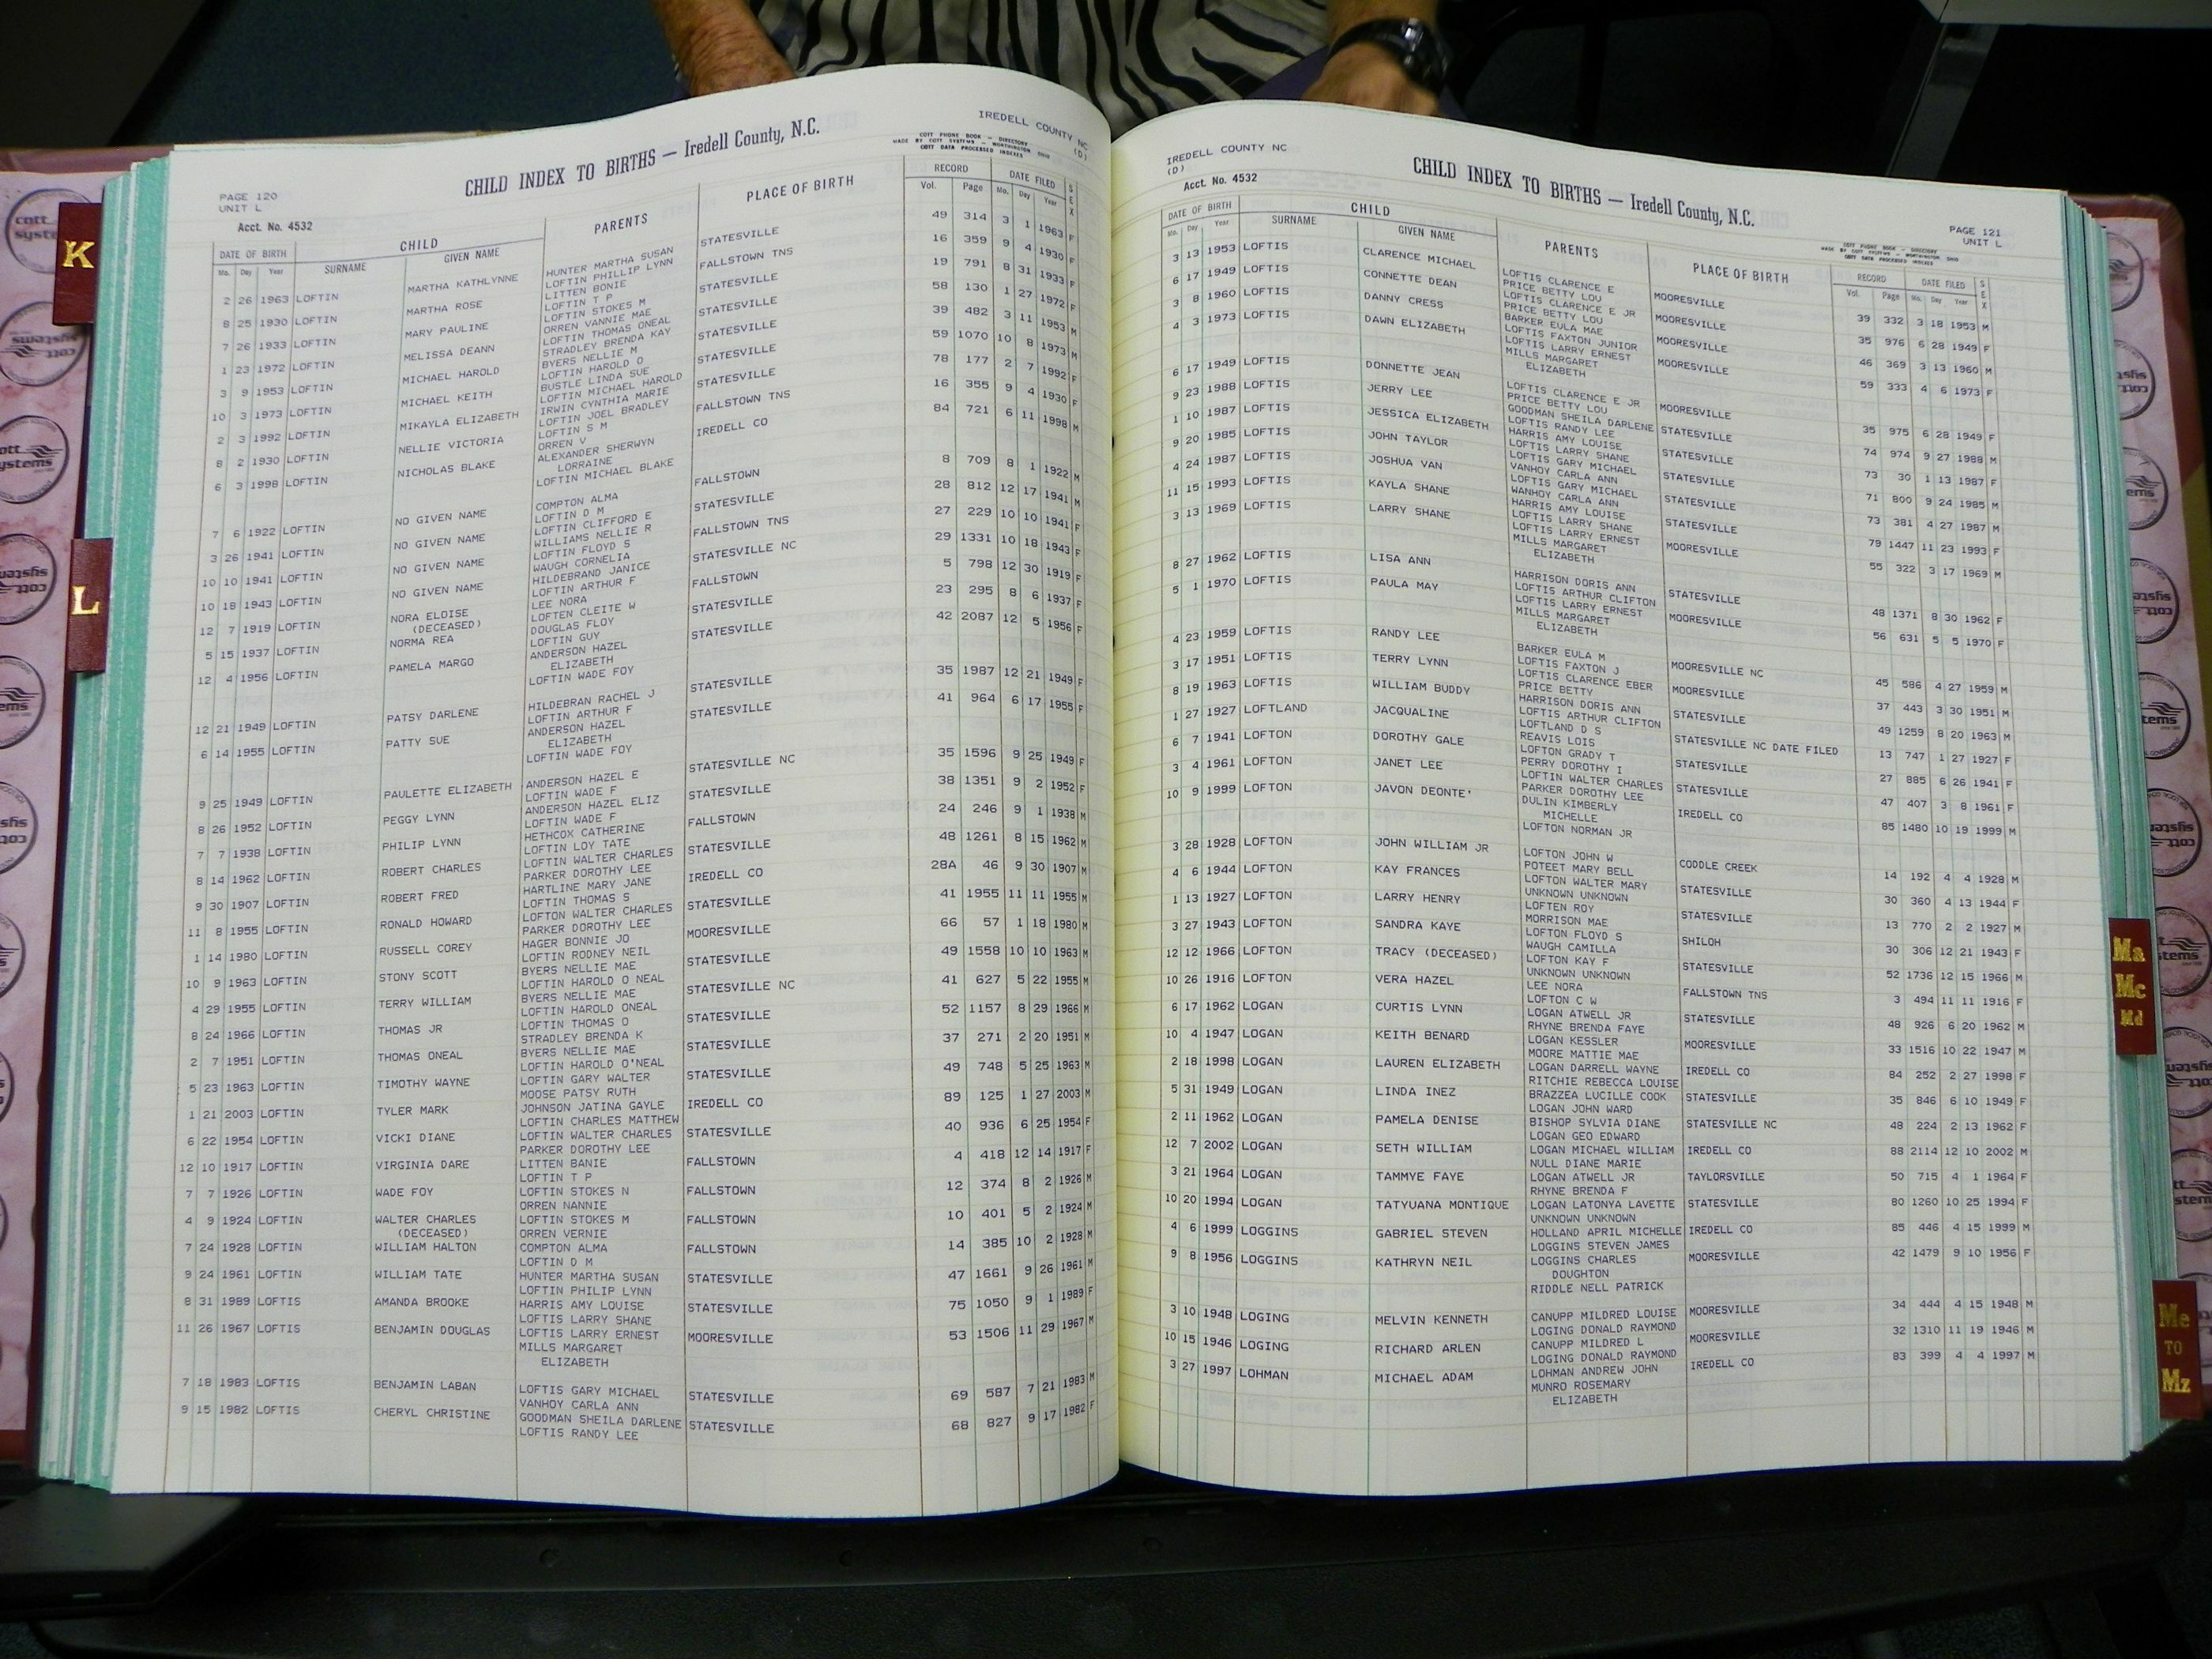 IREDELL COUNTY NC
(D)
CHILD INDEX TO BIRTHS — Iredell County, N.C.
COTT PHONE BOOK — DIRECTORY
MADE BY COTT SYSTEMS — WORTHINGTON OHIO
COTT DATA PROCESSED INDEXES
PAGE 120
UNIT L
Acct. No. 4532
DATE OF BIRTH CHILD PARENTS PLACE OF BIRTH RECORD DATE FILED SEX
Mo. Day Year SURNAME GIVEN NAME Vol. Page Mo. Day Year
2 26 1963 LOFTIN MARTHA KATHLYNNE HUNTER MARTHA SUSAN STATESVILLE 49 314 3 1 1963 F
LOFTIN PHILLIP LYNN
8 25 1930 LOFTIN MARTHA ROSE LITTEN BONIE FALLSTOWN TNS 16 359 9 4 1930 F
LOFTIN T P
7 26 1933 LOFTIN MARY PAULINE LOFTIN STOKES M STATESVILLE 19 791 8 31 1933 F
ORREN VANNIE MAE
1 23 1972 LOFTIN MELISSA DEANN LOFTIN THOMAS ONEAL STATESVILLE 58 130 1 27 1972 F
STRADLEY BRENDA KAY
3 9 1953 LOFTIN MICHAEL HAROLD BYERS NELLIE M STATESVILLE 39 482 3 11 1953 M
LOFTIN HAROLD O
10 3 1973 LOFTIN MICHAEL KEITH BUSTLE LINDA SUE STATESVILLE 59 1070 10 8 1973 M
LOFTIN MICHAEL HAROLD
2 3 1992 LOFTIN MIKAYLA ELIZABETH IRWIN CYNTHIA MARIE STATESVILLE 78 177 2 7 1992 F
LOFTIN JOEL BRADLEY
8 2 1930 LOFTIN NELLIE VICTORIA LOFTIN S M FALLSTOWN TNS 16 355 9 4 1930 F
ORREN V
6 3 1998 LOFTIN NICHOLAS BLAKE ALEXANDER SHERWYN IREDELL CO 84 721 6 11 1998 M
LORRAINE
LOFTIN MICHAEL BLAKE
7 6 1922 LOFTIN NO GIVEN NAME COMPTON ALMA FALLSTOWN 8 709 8 1 1922 M
LOFTIN D M
3 26 1941 LOFTIN NO GIVEN NAME LOFTIN CLIFFORD E STATESVILLE 28 812 12 17 1941 M
WILLIAMS NELLIE R
10 10 1941 LOFTIN NO GIVEN NAME LOFTIN FLOYD S FALLSTOWN TNS 27 229 10 10 1941 F
WAUGH CORNELIA
10 18 1943 LOFTIN NO GIVEN NAME HILDEBRAND JANICE STATESVILLE NC 29 1331 10 18 1943 F
LOFTIN ARTHUR F
12 7 1919 LOFTIN NORA ELOISE LEE NORA FALLSTOWN 5 798 12 30 1919 F
(DECEASED) LOFTEN CLEITE W
5 15 1937 LOFTIN NORMA REA DOUGLAS FLOY STATESVILLE 23 295 8 6 1937 F
LOFTIN GUY
12 4 1956 LOFTIN PAMELA MARGO ANDERSON HAZEL STATESVILLE 42 2087 12 5 1956 F
ELIZABETH
LOFTIN WADE FOY
12 21 1949 LOFTIN PATSY DARLENE HILDEBRAN RACHEL J STATESVILLE 35 1987 12 21 1949 F
LOFTIN ARTHUR F
6 14 1955 LOFTIN PATTY SUE ANDERSON HAZEL STATESVILLE 41 964 6 17 1955 F
ELIZABETH
LOFTIN WADE FOY
9 25 1949 LOFTIN PAULETTE ELIZABETH ANDERSON HAZEL E STATESVILLE NC 35 1596 9 25 1949 F
LOFTIN WADE F
8 26 1952 LOFTIN PEGGY LYNN ANDERSON HAZEL ELIZ STATESVILLE 38 1351 9 2 1952 F
LOFTIN WADE F
7 7 1938 LOFTIN PHILIP LYNN HETHCOX CATHERINE FALLSTOWN 24 246 9 1 1938 M
LOFTIN LOY TATE
8 14 1962 LOFTIN ROBERT CHARLES LOFTIN WALTER CHARLES STATESVILLE 48 1261 8 15 1962 M
PARKER DOROTHY LEE
9 30 1907 LOFTIN ROBERT FRED HARTLINE MARY JANE IREDELL CO 28A 46 9 30 1907 M
LOFTIN THOMAS S
11 8 1955 LOFTIN RONALD HOWARD LOFTON WALTER CHARLES STATESVILLE 41 1955 11 11 1955 M
PARKER DOROTHY LEE
1 14 1980 LOFTIN RUSSELL COREY HAGER BONNIE JO MOORESVILLE 66 57 1 18 1980 M
LOFTIN RODNEY NEIL
10 9 1963 LOFTIN STONY SCOTT BYERS NELLIE MAE STATESVILLE 49 1558 10 10 1963 M
LOFTIN HAROLD O NEAL
4 29 1955 LOFTIN TERRY WILLIAM BYERS NELLIE MAE STATESVILLE NC 41 627 5 22 1955 M
LOFTIN HAROLD ONEAL
8 24 1966 LOFTIN THOMAS JR LOFTIN THOMAS O STATESVILLE 52 1157 8 29 1966 M
STRADLEY BRENDA K
2 7 1951 LOFTIN THOMAS ONEAL BYERS NELLIE MAE STATESVILLE 37 271 2 20 1951 M
LOFTIN HAROLD O'NEAL
5 23 1963 LOFTIN TIMOTHY WAYNE LOFTIN GARY WALTER STATESVILLE 49 748 5 25 1963 M
MOOSE PATSY RUTH
1 21 2003 LOFTIN TYLER MARK JOHNSON JATINA GAYLE IREDELL CO 89 125 1 27 2003 M
LOFTIN CHARLES MATTHEW
6 22 1954 LOFTIN VICKI DIANE LOFTIN WALTER CHARLES STATESVILLE 40 936 6 25 1954 F
PARKER DOROTHY LEE
12 10 1917 LOFTIN VIRGINIA DARE LITTEN BANIE FALLSTOWN 4 418 12 14 1917 F
LOFTIN T P
7 7 1926 LOFTIN WADE FOY LOFTIN STOKES N FALLSTOWN 12 374 8 2 1926 M
ORREN NANNIE
4 9 1924 LOFTIN WALTER CHARLES LOFTIN STOKES M FALLSTOWN 10 401 5 2 1924 M
(DECEASED) ORREN VERNIE
7 24 1928 LOFTIN WILLIAM HALTON COMPTON ALMA FALLSTOWN 14 385 10 2 1928 M
LOFTIN D M
9 24 1961 LOFTIN WILLIAM TATE HUNTER MARTHA SUSAN STATESVILLE 47 1661 9 26 1961 M
LOFTIN PHILIP LYNN
8 31 1989 LOFTIS AMANDA BROOKE HARRIS AMY LOUISE STATESVILLE 75 1050 9 1 1989 F
LOFTIS LARRY SHANE
11 26 1967 LOFTIS BENJAMIN DOUGLAS LOFTIS LARRY ERNEST MOORESVILLE 53 1506 11 29 1967 M
MILLS MARGARET
ELIZABETH
7 18 1983 LOFTIS BENJAMIN LABAN LOFTIS GARY MICHAEL STATESVILLE 69 587 7 21 1983 M
VANHOY CARLA ANN
9 15 1982 LOFTIS CHERYL CHRISTINE GOODMAN SHEILA DARLENE STATESVILLE 68 827 9 17 1982 F
LOFTIS RANDY LEE
IREDELL COUNTY NC
(D)
Acct. No. 4532
CHILD INDEX TO BIRTHS — Iredell County, N.C.
PAGE 121
UNIT L
COTT PHONE BOOK — DIRECTORY
MADE BY COTT SYSTEMS — WORTHINGTON OHIO
COTT DATA PROCESSED INDEXES
DATE OF BIRTH CHILD PARENTS PLACE OF BIRTH RECORD DATE FILED SEX
Mo. Day Year SURNAME GIVEN NAME Vol. Page Mo. Day Year
3 13 1953 LOFTIS CLARENCE MICHAEL LOFTIS CLARENCE E MOORESVILLE 39 332 3 18 1953 M
PRICE BETTY LOU
6 17 1949 LOFTIS CONNETTE DEAN LOFTIS CLARENCE E JR MOORESVILLE 35 976 6 28 1949 F
PRICE BETTY LOU
3 8 1960 LOFTIS DANNY CRESS BARKER EULA MAE MOORESVILLE 46 369 3 13 1960 M
LOFTIS FAXTON JUNIOR
4 3 1973 LOFTIS DAWN ELIZABETH LOFTIS LARRY ERNEST MOORESVILLE 59 333 4 6 1973 F
MILLS MARGARET
ELIZABETH
6 17 1949 LOFTIS DONNETTE JEAN LOFTIS CLARENCE E JR MOORESVILLE 35 975 6 28 1949 F
PRICE BETTY LOU
9 23 1988 LOFTIS JERRY LEE GOODMAN SHEILA DARLENE STATESVILLE 74 974 9 27 1988 M
LOFTIS RANDY LEE
1 10 1987 LOFTIS JESSICA ELIZABETH HARRIS AMY LOUISE STATESVILLE 73 30 1 13 1987 F
LOFTIS LARRY SHANE
9 20 1985 LOFTIS JOHN TAYLOR LOFTIS GARY MICHAEL STATESVILLE 71 800 9 24 1985 M
VANHOY CARLA ANN
4 24 1987 LOFTIS JOSHUA VAN LOFTIS GARY MICHAEL STATESVILLE 73 381 4 27 1987 M
WANHOY CARLA ANN
11 15 1993 LOFTIS KAYLA SHANE HARRIS AMY LOUISE STATESVILLE 79 1447 11 23 1993 F
LOFTIS LARRY SHANE
3 13 1969 LOFTIS LARRY SHANE LOFTIS LARRY ERNEST MOORESVILLE 55 322 3 17 1969 M
MILLS MARGARET
ELIZABETH
8 27 1962 LOFTIS LISA ANN HARRISON DORIS ANN STATESVILLE 48 1371 8 30 1962 F
LOFTIS ARTHUR CLIFTON
5 1 1970 LOFTIS PAULA MAY LOFTIS LARRY ERNEST MOORESVILLE 56 631 5 5 1970 F
MILLS MARGARET
ELIZABETH
4 23 1959 LOFTIS RANDY LEE BARKER EULA M MOORESVILLE NC 45 586 4 27 1959 M
LOFTIS FAXTON J
3 17 1951 LOFTIS TERRY LYNN LOFTIS CLARENCE EBER MOORESVILLE 37 443 3 30 1951 M
PRICE BETTY
8 19 1963 LOFTIS WILLIAM BUDDY HARRISON DORIS ANN STATESVILLE 49 1259 8 20 1963 M
LOFTIS ARTHUR CLIFTON
1 27 1927 LOFTLAND JACQUALINE LOFTLAND D S STATESVILLE NC DATE FILED 13 747 1 27 1927 F
REAVIS LOIS
6 7 1941 LOFTON DOROTHY GALE LOFTON GRADY T STATESVILLE 27 885 6 26 1941 F
PERRY DOROTHY I
3 4 1961 LOFTON JANET LEE LOFTIN WALTER CHARLES STATESVILLE 47 407 3 8 1961 F
PARKER DOROTHY LEE
10 9 1999 LOFTON JAVON DEONTE' DULIN KIMBERLY IREDELL CO 85 1480 10 19 1999 M
MICHELLE
LOFTON NORMAN JR
3 28 1928 LOFTON JOHN WILLIAM JR LOFTON JOHN W CODDLE CREEK 14 192 4 4 1928 M
POTEET MARY BELL
4 6 1944 LOFTON KAY FRANCES LOFTON WALTER MARY STATESVILLE 30 360 4 13 1944 F
UNKNOWN UNKNOWN
1 13 1927 LOFTON LARRY HENRY LOFTEN ROY STATESVILLE 13 770 2 2 1927 M
MORRISON MAE
3 27 1943 LOFTON SANDRA KAYE LOFTON FLOYD S SHILOH 30 306 12 21 1943 F
WAUGH CAMILLA
12 12 1966 LOFTON TRACY (DECEASED) LOFTON KAY F STATESVILLE 52 1736 12 15 1966 M
UNKNOWN UNKNOWN
10 26 1916 LOFTON VERA HAZEL LEE NORA FALLSTOWN TNS 3 494 11 11 1916 F
LOFTON C W
6 17 1962 LOGAN CURTIS LYNN LOGAN ATWELL JR STATESVILLE 48 926 6 20 1962 M
RHYNE BRENDA FAYE
10 4 1947 LOGAN KEITH BENARD LOGAN KESSLER MOORESVILLE 33 1516 10 22 1947 M
MOORE MATTIE MAE
2 18 1998 LOGAN LAUREN ELIZABETH LOGAN DARRELL WAYNE IREDELL CO 84 252 2 27 1998 F
RITCHIE REBECCA LOUISE
5 31 1949 LOGAN LINDA INEZ BRAZZEA LUCILLE COOK STATESVILLE 35 846 6 10 1949 F
LOGAN JOHN WARD
2 11 1962 LOGAN PAMELA DENISE BISHOP SYLVIA DIANE STATESVILLE NC 48 224 2 13 1962 F
LOGAN GEO EDWARD
12 7 2002 LOGAN SETH WILLIAM LOGAN MICHAEL WILLIAM IREDELL CO 88 2114 12 10 2002 M
NULL DIANE MARIE
3 21 1964 LOGAN TAMMYE FAYE LOGAN ATWELL JR TAYLORSVILLE 50 715 4 1 1964 F
RHYNE BRENDA F
10 20 1994 LOGAN TATYUANA MONTIQUE LOGAN LATONYA LAVETTE STATESVILLE 80 1260 10 25 1994 F
UNKNOWN UNKNOWN
4 6 1999 LOGGINS GABRIEL STEVEN HOLLAND APRIL MICHELLE IREDELL CO 85 446 4 15 1999 M
LOGGINS STEVEN JAMES
9 8 1956 LOGGINS KATHRYN NEIL LOGGINS CHARLES MOORESVILLE 42 1479 9 10 1956 F
DOUGHTON
RIDDLE NELL PATRICK
3 10 1948 LOGING MELVIN KENNETH CANUPP MILDRED LOUISE MOORESVILLE 34 444 4 15 1948 M
LOGING DONALD RAYMOND
10 15 1946 LOGING RICHARD ARLEN CANUPP MILDRED L MOORESVILLE 32 1310 11 19 1946 M
LOGING DONALD RAYMOND
3 27 1997 LOHMAN MICHAEL ADAM LOHMAN ANDREW JOHN IREDELL CO 83 399 4 4 1997 M
MUNRO ROSEMARY
ELIZABETH
K
L
Ma
Mc
Md
Me
TO
Mz
cott
systems